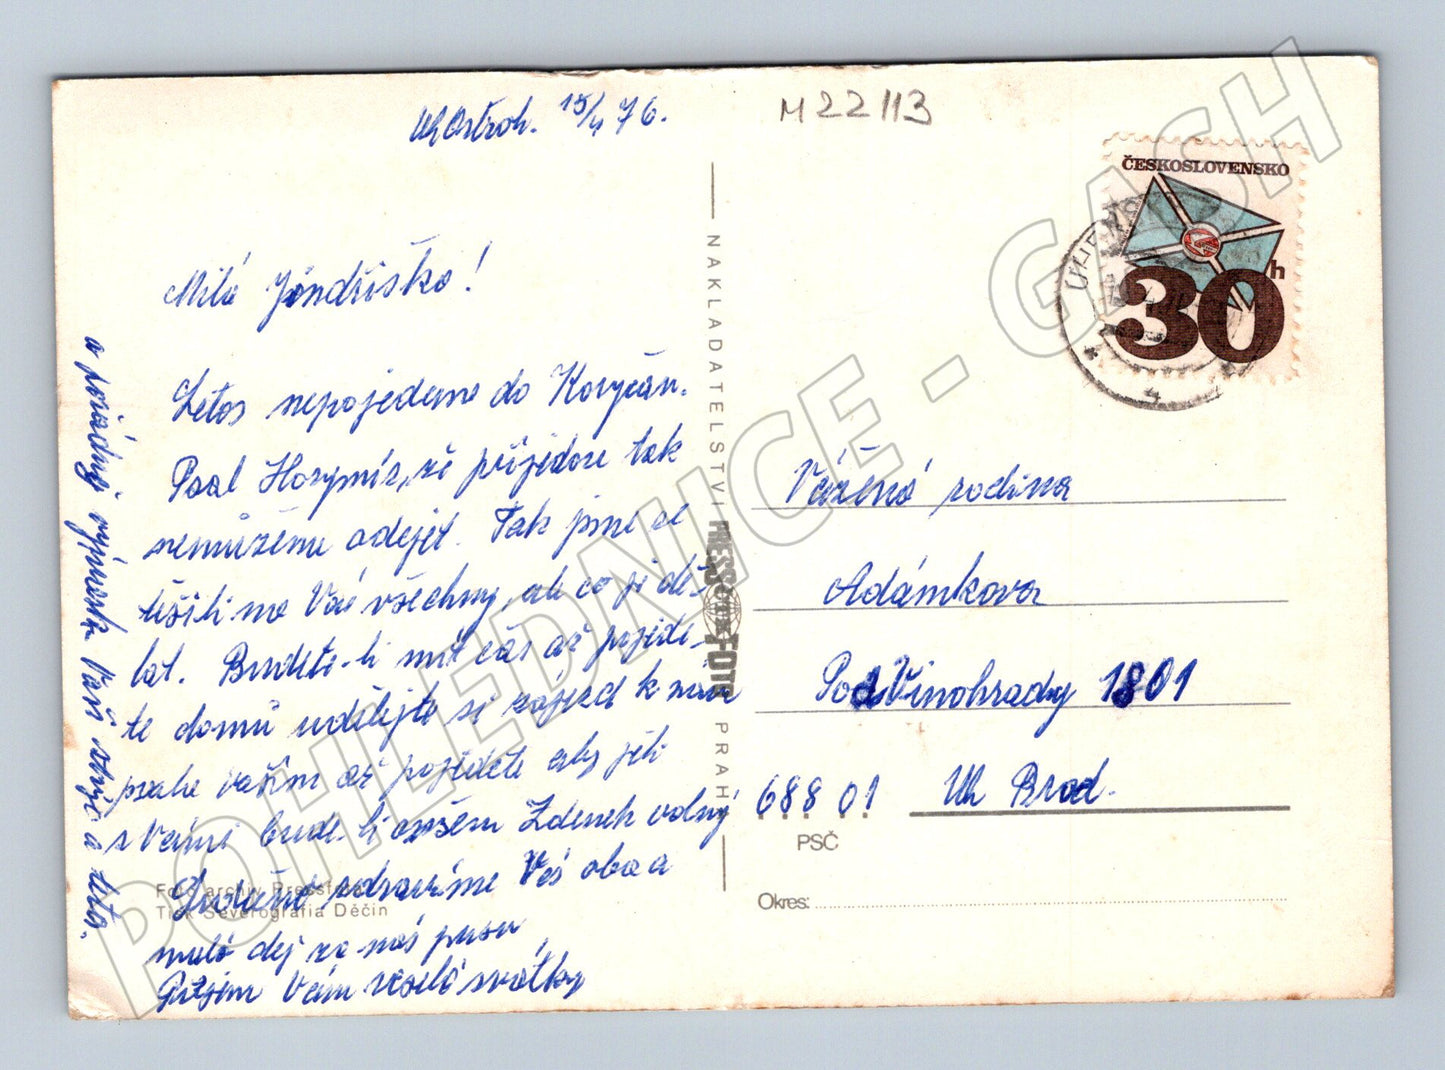 Uh Ostroh. 15/4 76.
M 22113
ČESKOSLOVENSKO
30 h
Milá Jindřiško!
Letos nepojedeme do Koryčan.
Psal Horymír, že přijedou tak
nemůžeme odejet. Tak jsme se
těšili na Vás všechny, ale co se dě-
lat. Budete-li mít čas až pojede-
te domů udělejte si zájezd k nám
vašim až pojedete aby jeli
s Vámi bude-li ovšem Zdenek volný
Srdečně zdravíme Vás oba a
malé dej za nás pusu
Přejem Vám veselé svátky
a pořádný výprask Vaš strýc a teta.
NAKLADATELSTVÍ PRESSFOTO PRAHA
Foto archiv Pressfoto
Tisk Severografia Děčín
Vážená rodina
Adámkova
Pod Vinohrady 1801
688 01 Uh Brod.
PSČ
Okres:
POHLEDNICE - GASH